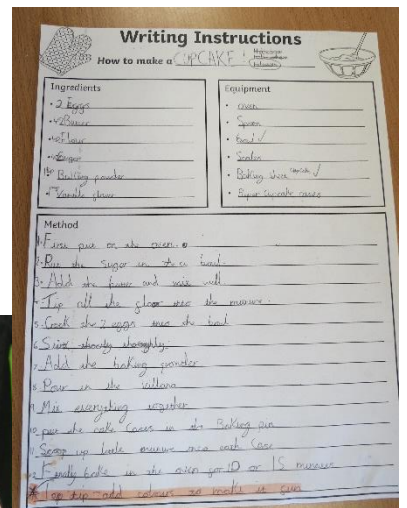 Writing Instructions
How to make a CUPCAKE!
Ingredients
• 2 Eggs
• Butter
• Flour
• Sugar
Baking powder
Vanilla
Equipment
• oven
• Spoon
• bowl ✓
• Scales
• Baking
• Paper cupcake cases
Method
1. First put on the oven.
2. Put the sugar in the a bowl.
3. Add the butter and mix well
4. Tip all the into the mixture.
5. Crack the 2 eggs into the bowl
6.
7. Add the baking powder
8. Pour in the
9. Mix everything together
10. put the cake cases in the Baking
11. Scoop up little mixture into each case
12. Finally bake in the oven for 10 or 15
* Top tip add colours to make it fun